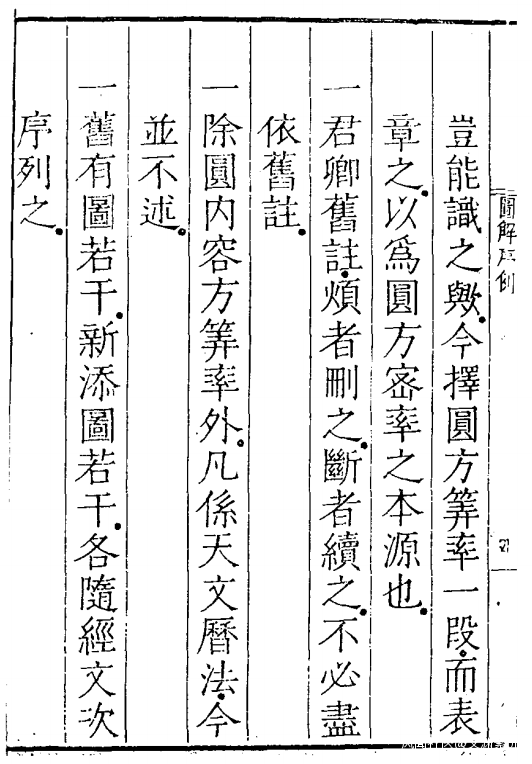 圖解凡例
豈能識之歟今擇圓方筭率一段而表
章之以爲圓方密率之本源也
一君卿舊註煩者刪之斷者續之不必盡
依舊註
一除圓内容方筭率外凡係天文曆法今
並不述
一舊有圖若干新添圖若干各隨經文次
序列之